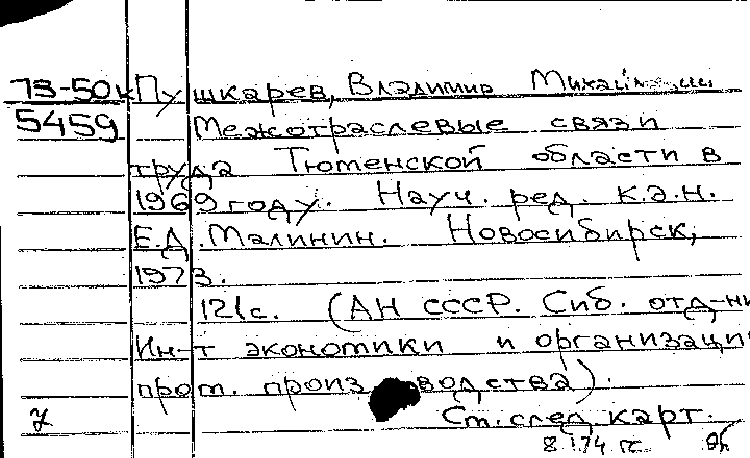 73-50к Пушкарев, Владимир Михайлович
5459 Межотраслевые связи
труда Тюменской области в
1969 году. Науч. ред. к.э.н.
Е.Д. Малинин. Новосибирск,
1973.
121с. (АН СССР. Сиб. отд-ни
Ин-т экономики и организаци
пром. производства).
Ст. след. карт.
8.174